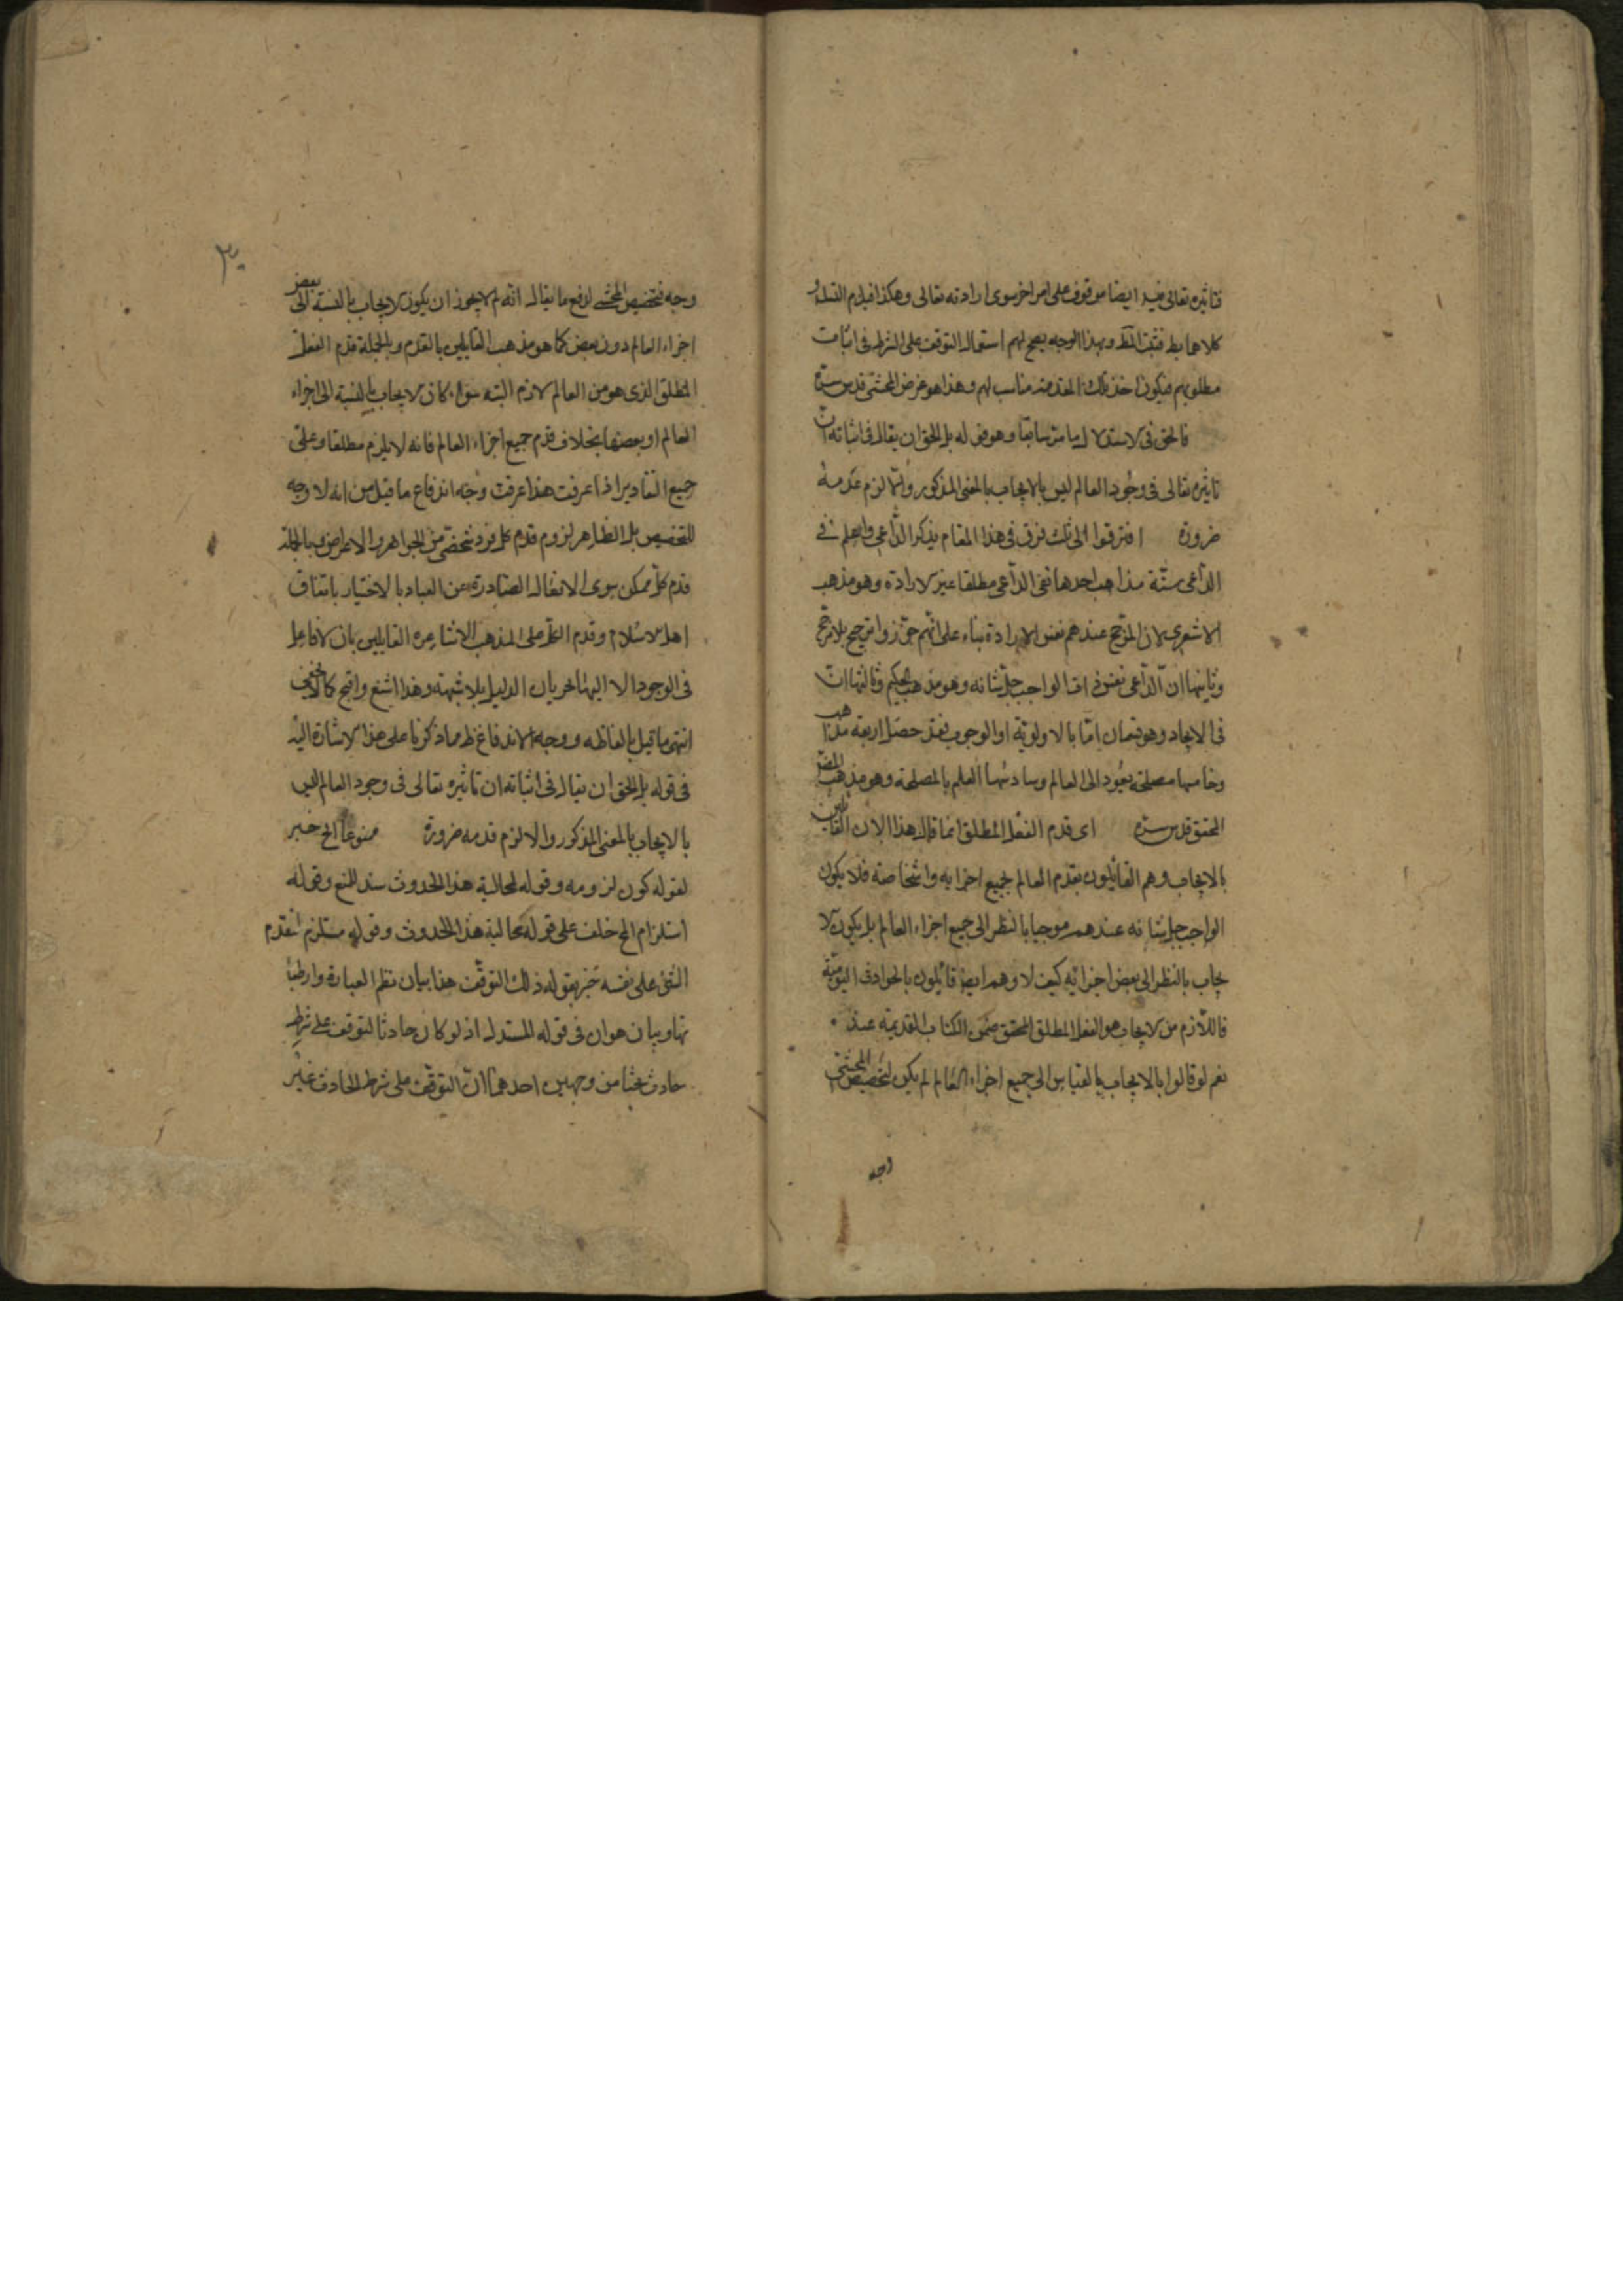 فتاثيره تعالى فيه ايضا موقوف على امر اخر سوى ارادته تعالى وهكذا فيلزم التسلسل او
كلاهما بط فثبت المط وبهذا الوجه يصح لهم استعمال التوقف على الشرط في اثبات
مطلوبهم فيكون اخذ تلك المقدمة مناسب لهم وهذا هو غرض المحشي قدس سره
فالحق في الاستدلال ما مر سابقا وهو قوله بل الحق ان يقال في اثباته ان
تاثيره تعالى في وجود العالم ليس بالايجاب بالمعنى المذكور والا لزم قدمه
ضرورة افترقوا الى ثلث فرق في هذا المقام يذكر الداعي واعلم في
الداعي ستة مذاهب احدها نفي الداعي مطلقا غير الارادة وهو مذهب
الاشعري لان المرجح عندهم نفس الارادة بناء على انهم جوزوا ترجيح بلا مرجح
وثانيها ان الداعي نفس ذات الواجب جل شانه وهو مذهب الحكيم وثالثها ان
في الايجاد وهو قسمان اما بالاولوية او الوجوب فقد حصل اربعة مذاهب
وخامسها مصلحة يعود الى العالم وسادسها العلم بالمصلحة وهو مذهب المص
المحقق قدس سره اى قدم الفعل المطلق انما قال هذا لان القائلين
بالايجاب وهم القائلون بقدم العالم لجميع اجزايه واشخاصه فلا يكون
الواجب جل شانه عندهم موجبا بالنظر الى جميع اجزاء العالم بل يكون الا
يجاب بالنظر الى بعض اجزائه كيف لا وهم ايضا قائلون بالحوادث اليومية
فاللازم من الايجاب هو الفعل المطلق المحقق ضمن الكتاب القديمة عند
نعم لو قالوا بالايجاب بالقياس الى جميع اجزاء العالم لم يكن لتخصيص المحشي
وجه
٣٠
وجه فتخصيص المحشي لدفع ما يقال انه لم لا يجوز ان يكون الايجاب بالنسبة الى بعض
اجزاء العالم دون بعض كما هو مذهب القايلين بالقدم وبالجملة قدم الفعل
المطلق الذى هو من العالم لازم البتة سواء كان الايجاب بالنسبة الى اجزاء
العالم او بعضها بخلاف قدم جميع اجزاء العالم فانه لا يلزم مطلقا وعلى
جميع التقادير اذا عرفت هذا عرفت وجه اندفاع ما قيل من انه لا وجه
للتخصيص بل الظاهر لزوم قدم كل فرد شخصي من الجواهر والاعراض وبالجملة
قدم كل ممكن سوى الافعال الصادرة عن العباد بالاختيار باتفاق
اهل الاسلام وقدم الكل على المذهب الاشاعره القايلين بان لا فاعل
في الوجود الا الله لجريان الدليل بلا شبهة وهذا اشنع واقبح كما لا يخفى
انتهى ما قيل بالفاظه ووجه الاندفاع ظ مما ذكرنا على هذا الاشارة اليه
في قوله بل الحق ان يقال في اثباته ان تاثيره تعالى في وجود العالم ليس
بالايجاب بالمعنى المذكور والا لزم قدمه ضرورة ممنوعا الخ خبر
لقوله كون لزومه وقوله لمحالية هذا الحدوث سند للمنع وقوله
استلزام الخ خلف على قوله محالية هذا الحدوث وقوله مستلزم لتقدم
الشئ على نفسه خبر بقوله ذلك التوقف هذا بيان نظم العبارة وارتبا
تها وبيان هو ان في قوله المستدل اذ لو كان حادثا لتوقف على شرط
حادث بحثا من وجهين احدهما ان التوقف على شرط الحادث غير